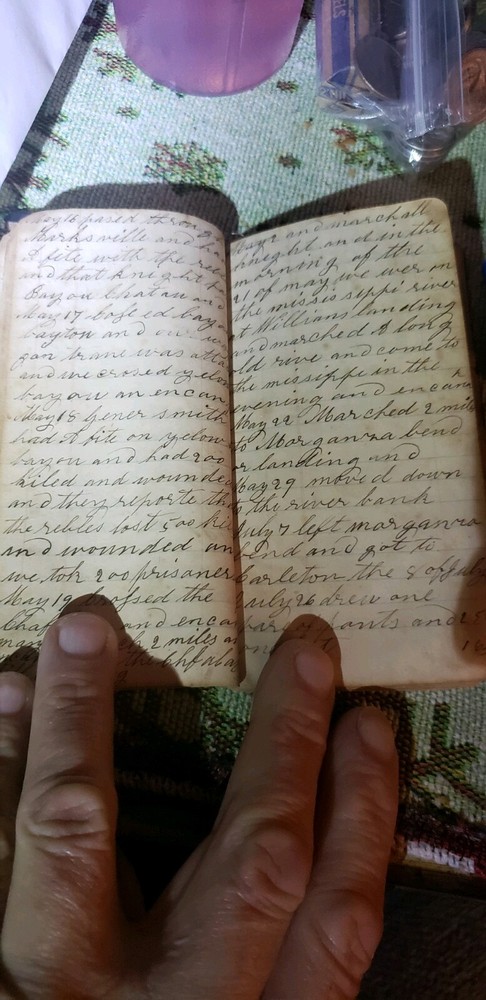 may 16 pased throu
Marksville and ha
A fite with the reb
and that knight
Bayou Chatau and
May 17 bofs ed bayo
baytou and our wa
gon trane was atta
and we crosed yelow
bayou an encam
May 18 Gener smith
had A fite on yelow
bayou and had 200
kiled and wounded
and they reporte tha
the rebles lost 500 kil
and wounded an
we tok 200 prisoners
May 19 Crofsed the
Chaf and encam
2 miles an
the Chfala
bayz and march all
knight and in the
morning of the
21 of may we wer on
the missis sippi river
at Willians landing
and marched A long
old rive and come to
the missippe in the
evening and encam
May 22 Marched 2 mile
to Morganza bend
or landing and
May 29 moved down
to the river bank
July 7 left morganza
bend and got to
Carleton the 8 off July
July 26 drew one
pants and